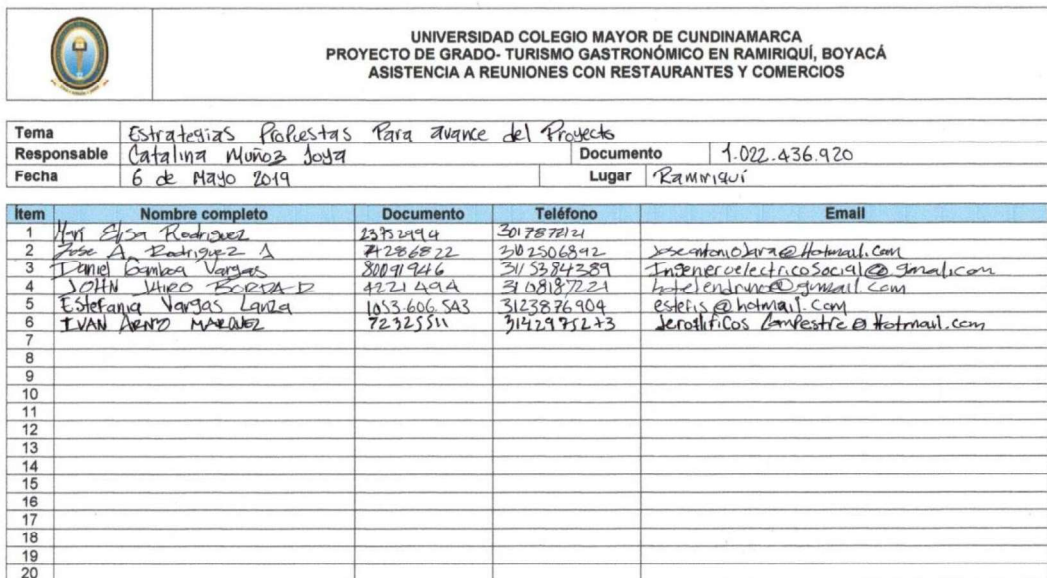 UNIVERSIDAD COLEGIO MAYOR DE CUNDINAMARCA
PROYECTO DE GRADO- TURISMO GASTRONÓMICO EN RAMIRIQUÍ, BOYACÁ
ASISTENCIA A REUNIONES CON RESTAURANTES Y COMERCIOS
Tema Estrategias Propuestas Para avance del Proyecto
Responsable Catalina Muñoz Joya Documento 1.022.436.920
Fecha 6 de Mayo 2019 Lugar Ramiriquí
Ítem Nombre completo Documento Teléfono Email
1 Elisa Rodriguez 23952994 3017872121
2 Jose A Rodriguez 3102506892 Joseantoniojara@Hotmail.Com
3 Daniel Gamboa Vargas 80091946 315384389 Ingenieroelectricosocial@gmail.com
4 JOHN JAIRO BORDA D 4221494 3108187221
5 Estefania Vargas Lanza 1053.606.543 3123876904 estefis@hotmail.Com
6 IVAN MARQUEZ 72325511 3142975273 Jeroglificos Campestre@Hotmail.com
7
8
9
10
11
12
13
14
15
16
17
18
19
20